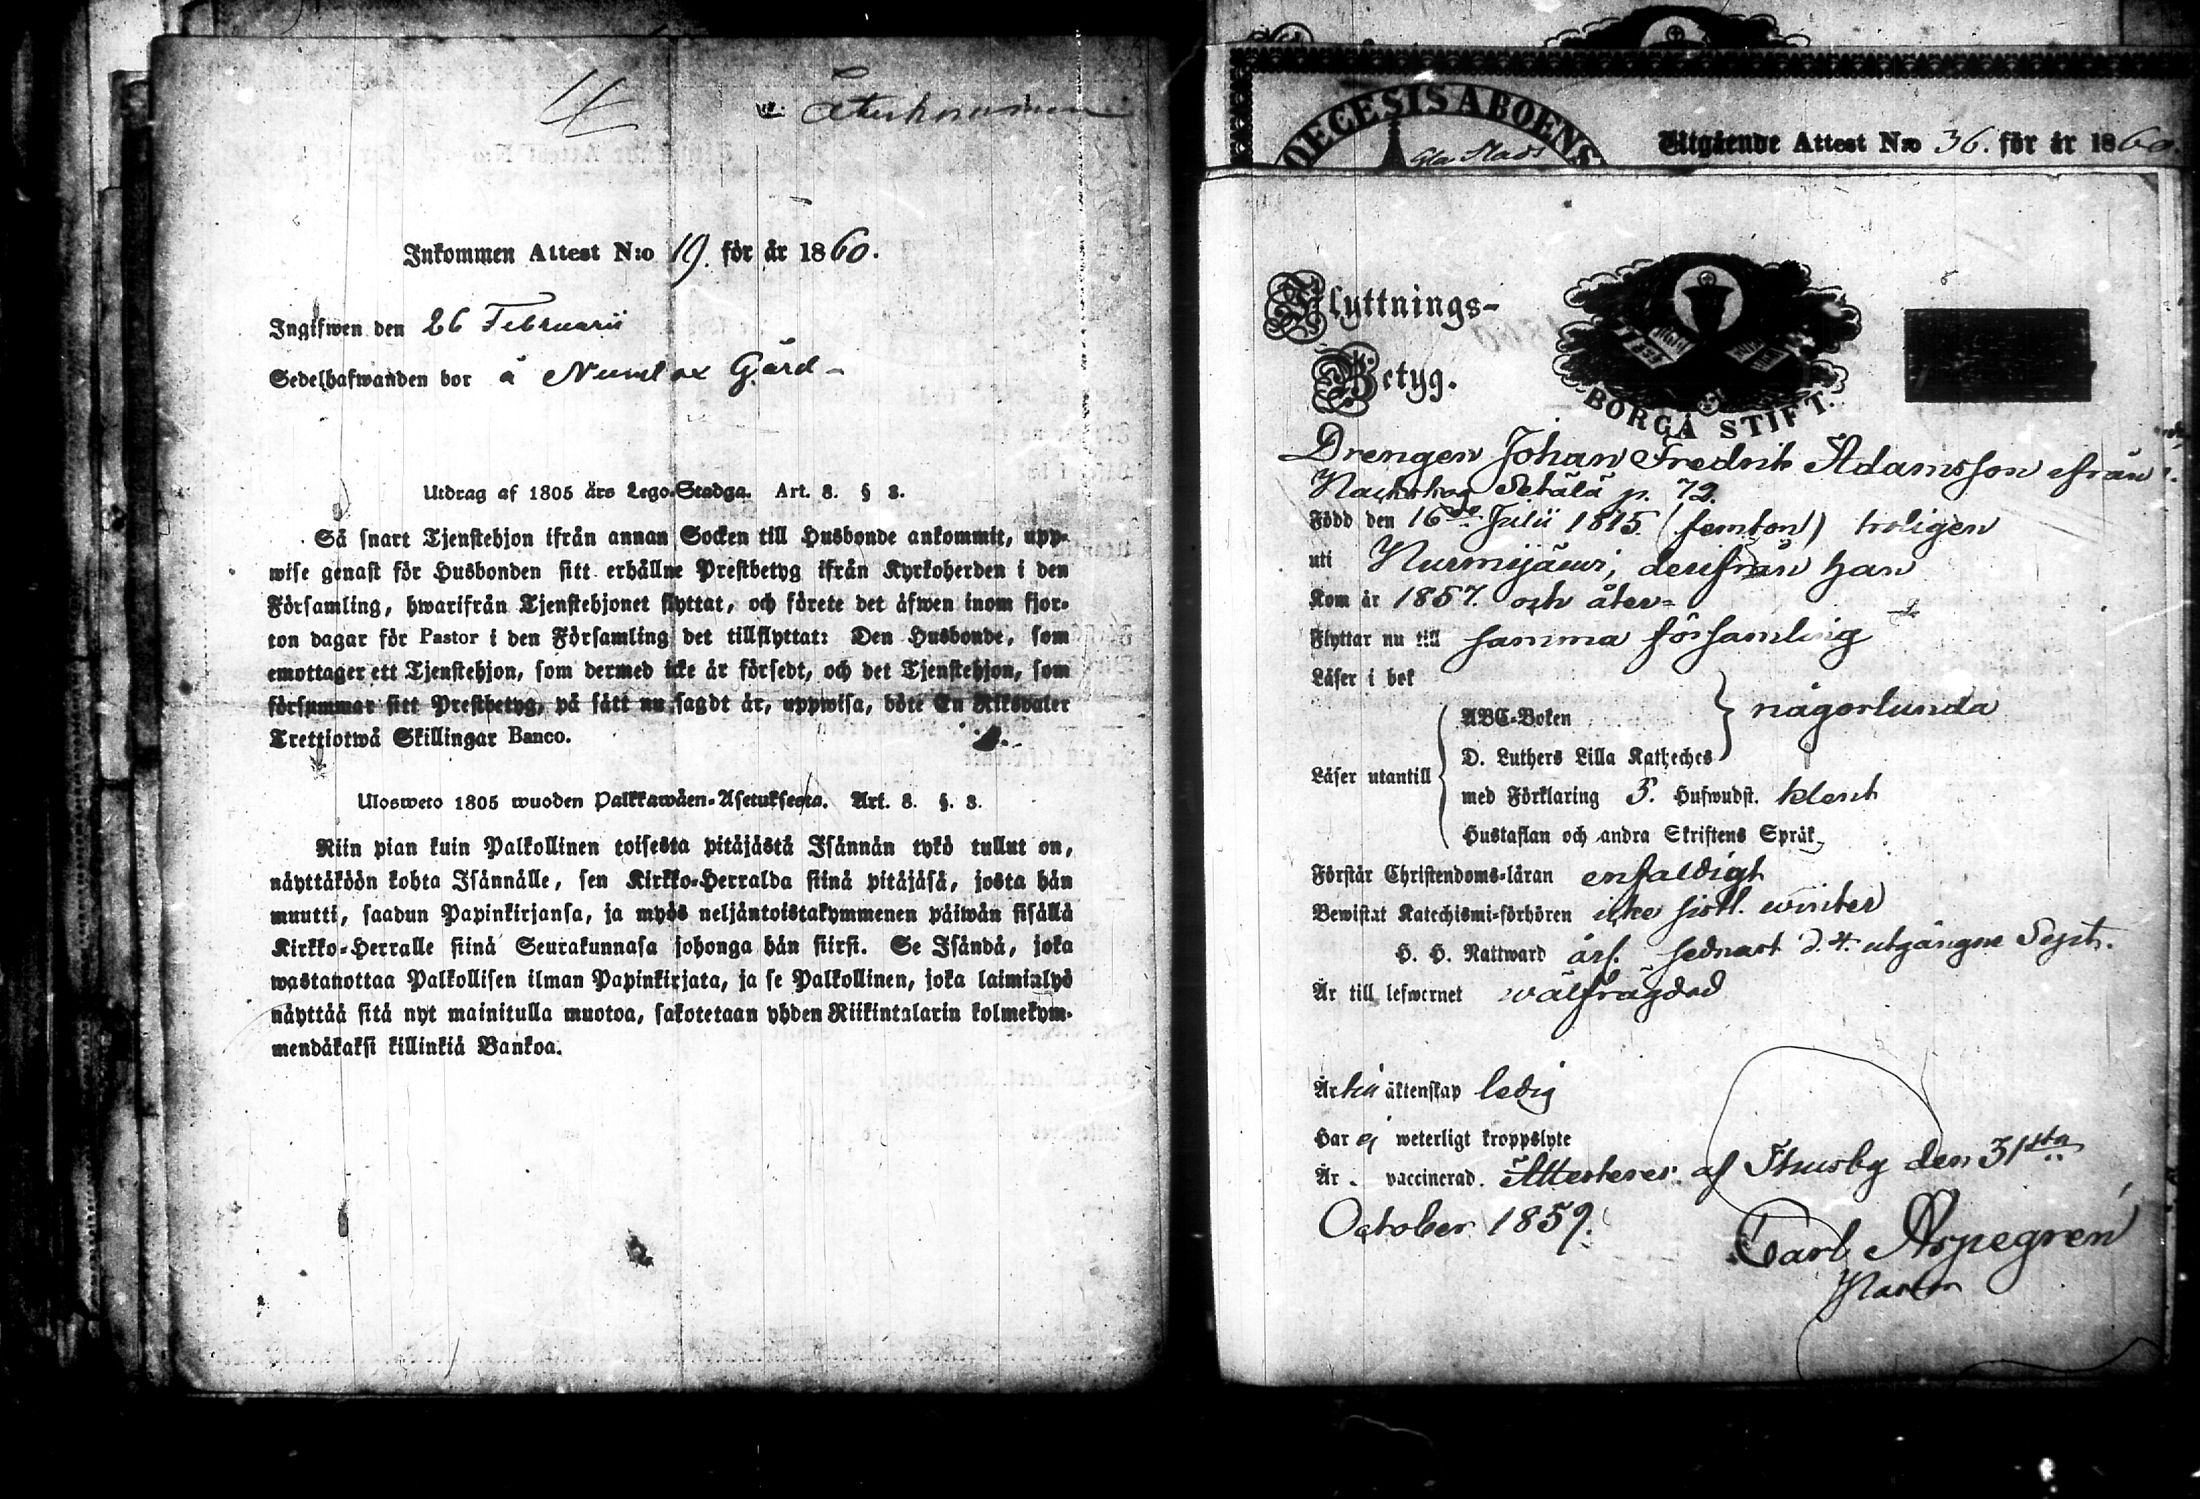 4
återkommen
Inkommen Attest N:o 19. för år 1860.
Ingifwen den 26 Februarii
Sedelhafwanden bor å Numlax Gård
Utdrag af 1805 års Lego-Stadga. Art. 8. § 8.
Så snart Tjenstehjon ifrån annan Socken till Husbonde ankommit, upp-
wise genast för Husbonden sitt erhållne Prestbetyg ifrån Kyrkoherden i den
Församling, hwarifrån Tjenstehjonet flyttat, och förete det äfwen inom fjor-
ton dagar för Pastor i den Församling det tillflyttat: Den Husbonde, som
emottager ett Tjenstehjon, som dermed icke är försedt, och det Tjenstehjon, som
försummar sitt Prestbetyg, på sätt nu sagdt är, uppwisa, böte En Riksdaler
Trettiotwå Skillingar Banco.
Ulosweto 1805 wuoden Palkkawäen-Asetuksesta. Art. 8. §. 8.
Niin pian kuin Palkollinen toisesta pitäjästä Isännän tykö tullut on,
näyttäköön kohta Isännälle, sen Kirkko-Herralda siinä pitäjäsä, josta hän
muutti, saadun Papinkirjansa, ja myös neljäntoistakymmenen päiwän sisällä
Kirkko-Herralle siinä Seurakunnasa johonga hän siirsi. Se Isändä, joka
wastanottaa Palkollisen ilman Papinkirjata, ja se Palkollinen, joka laiminlyö
näyttää sitä nyt mainitulla muotoa, sakotetaan yhden Riikintalarin kolmekym-
mendäkaksi killinkiä Bankoa.
DIOECESIS ABOENS
Utgående Attest N:o 36. för år 1860.
Flyttnings-
Betyg.
BORGÅ STIFT.
Drengen Johan Fredrik Adamsson ifrån
Setälä p. 72.
Född den 16de Julii 1815 (femton) troligen
uti Nurmijärwi, derifrån han
Kom år 1857. och åter-
Flyttar nu till samma församling
Läser i bok
ABC-Boken någorlunda
D. Luthers Lilla Katheches
Läser utantill
med Förklaring 5. Hufwudst. klent
Hustaflan och andra Skriftens Språk
Förstår Christendoms-läran enfaldigt
Bewistat Katechismi-förhören icke sistl. winter
H. H. Nattward årl. sednast d. 4. utgångne Sept.
Är till lefwernet wälfrägdad
Är till äktenskap ledig
Har ej weterligt kroppslyte
Är vaccinerad. Attesteres af Thusby den 31sta
October 1859.
Carl Aspegrén
Pastor